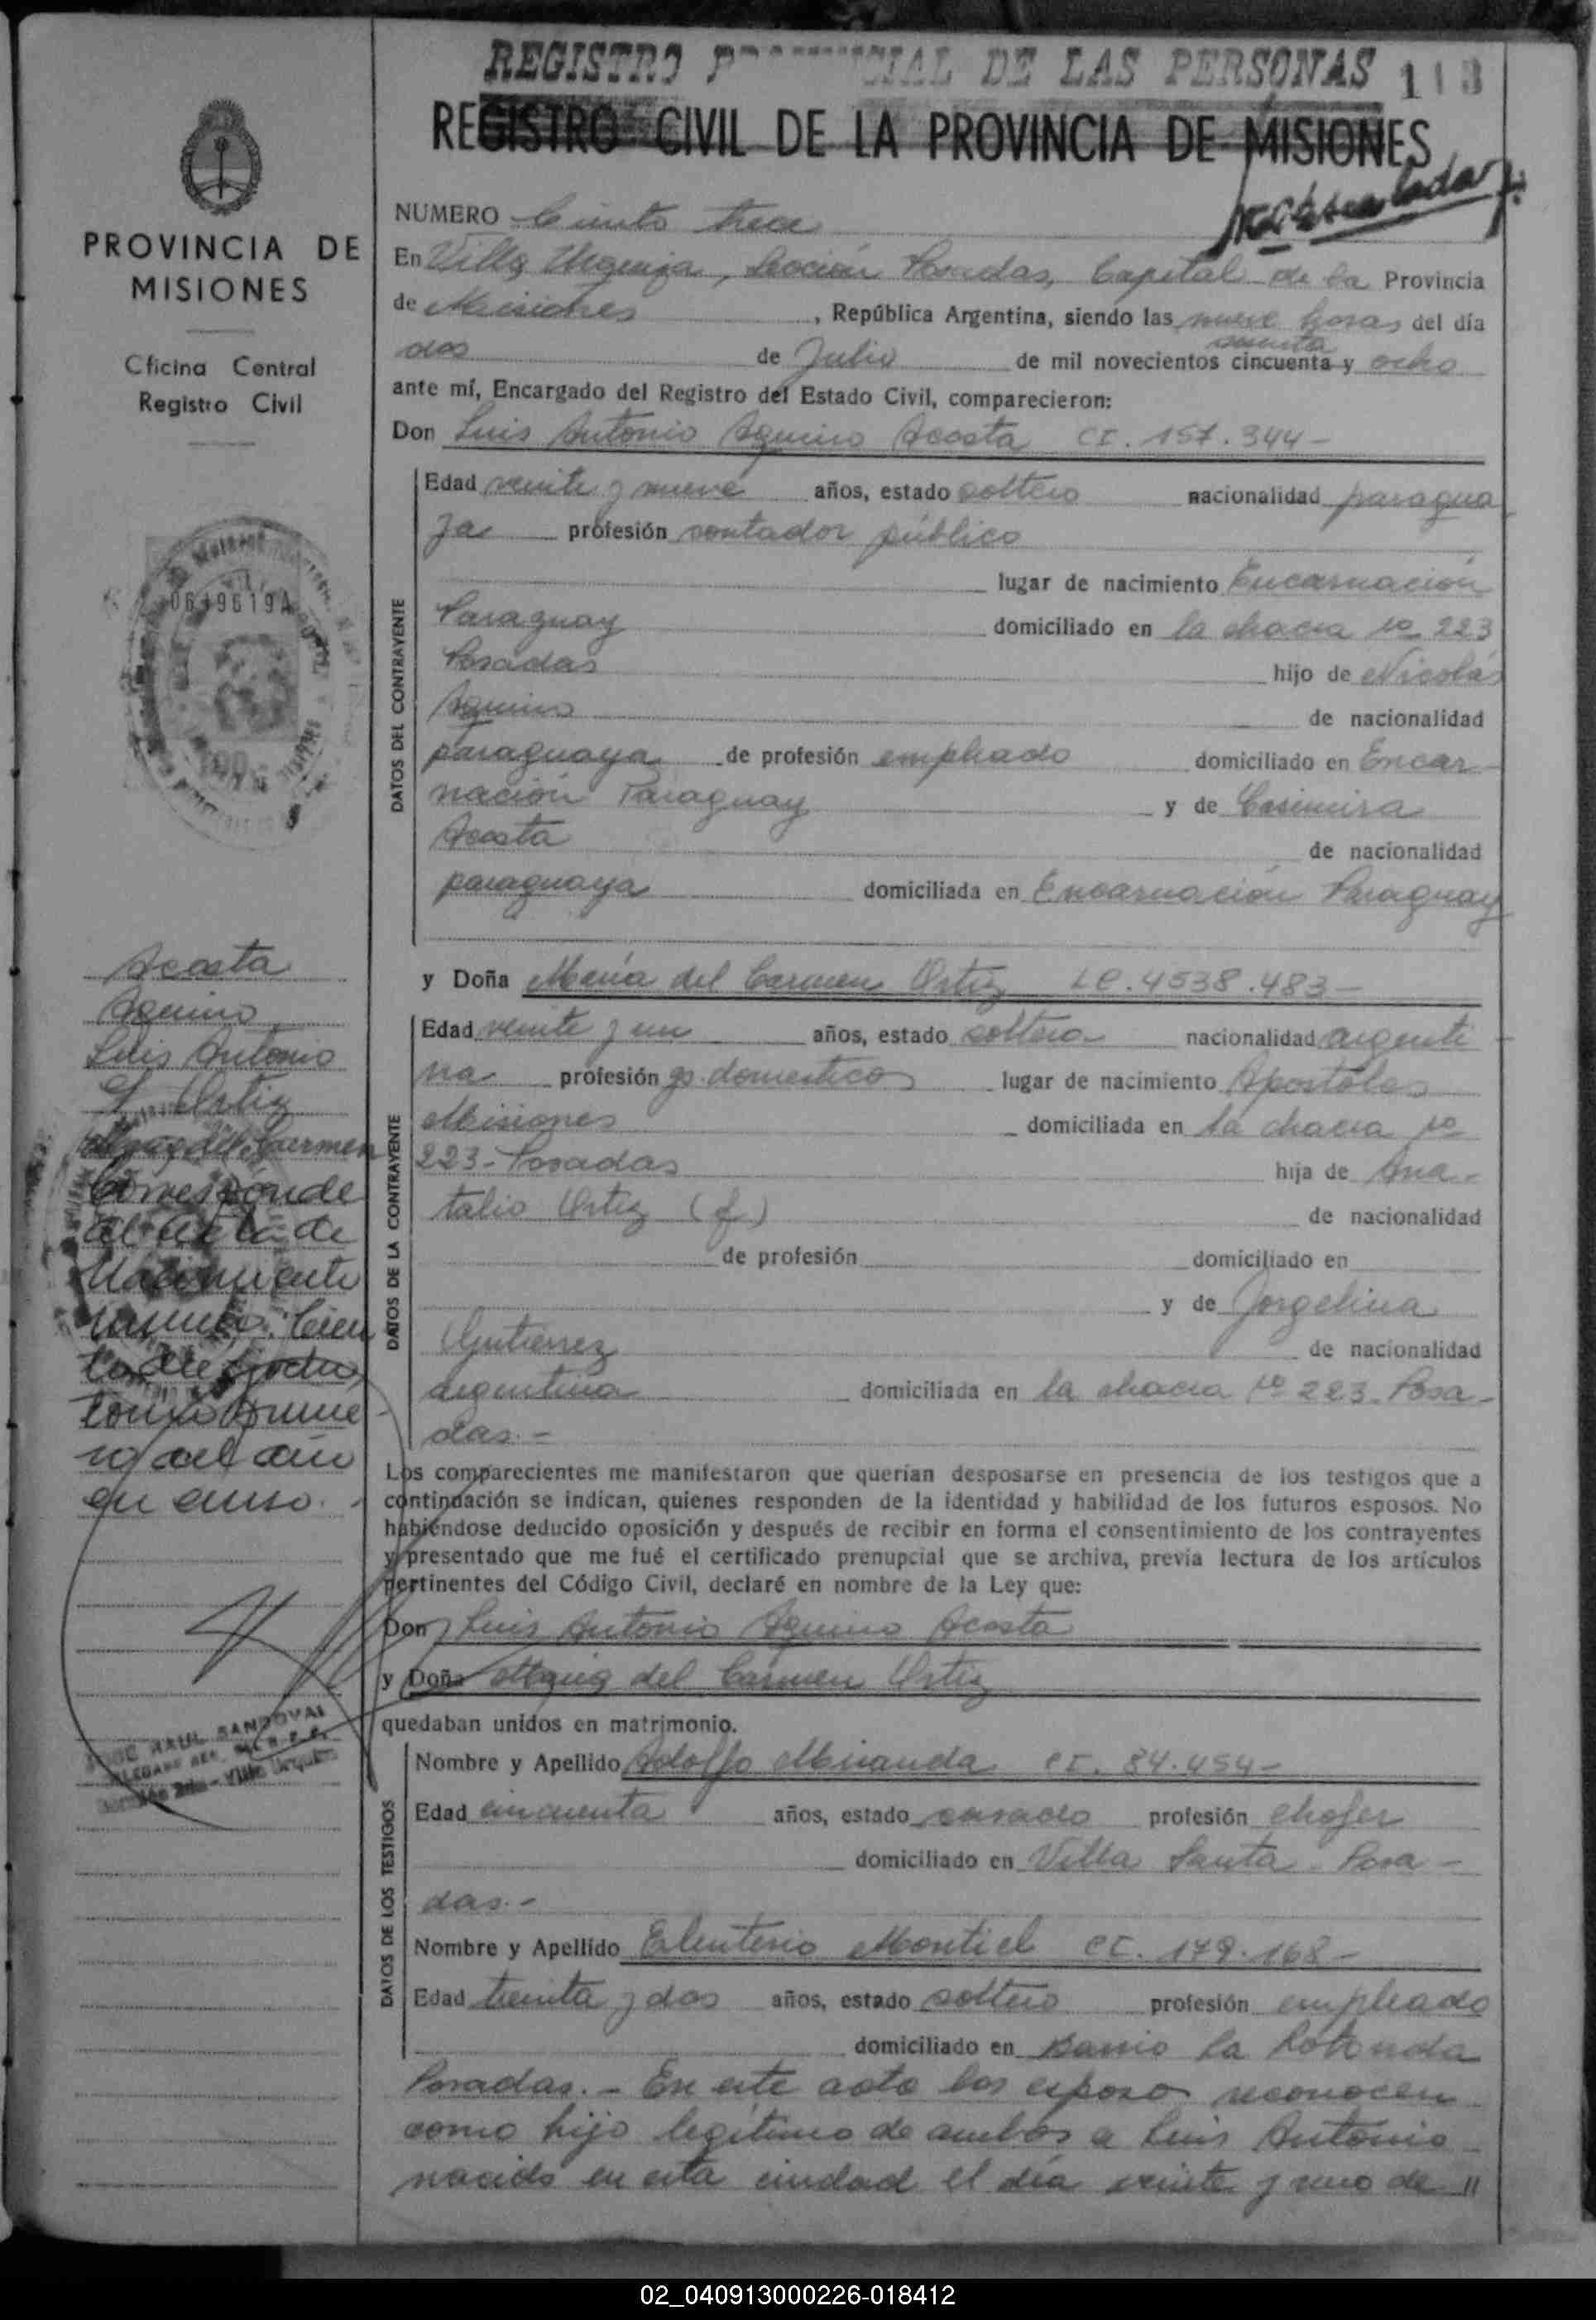 REGISTRO PROVINCIAL DE LAS PERSONAS 113
REGISTRO CIVIL DE LA PROVINCIA DE MISIONES
PROVINCIA DE
MISIONES
Oficina Central
Registro Civil
0649619A
Acosta
Aquino
Luis Antonio
y Ortiz
María del Carmen
Corresponde
al acta de
Nacimiento
número: Cien
tomo prime
ro del año
en curso.
RAUL SANDOVAL
NUMERO Ciento trece
En Villa Urquiza, Sección Posadas, Capital de la Provincia
de Misiones, República Argentina, siendo las nueve horas del día
sesenta
dos de Julio de mil novecientos cincuenta y ocho
ante mí, Encargado del Registro del Estado Civil, comparecieron:
Don Luis Antonio Aquino Acosta CI. 157.344-
DATOS DEL CONTRAYENTE
Edad veinte y nueve años, estado soltero nacionalidad paragua
ya profesión contador público
lugar de nacimiento Encarnación
Paraguay domiciliado en la chacra Nº 223
Posadas hijo de Nicolás
Aquino de nacionalidad
Paraguaya de profesión empleado domiciliado en Encar-
nación Paraguay y de Casimira
Acosta de nacionalidad
paraguaya domiciliada en Encarnación Paraguay
y Doña María del Carmen Ortiz LC. 4538.483-
DATOS DE LA CONTRAYENTE
Edad veinte y un años, estado soltera nacionalidad argenti
na profesión qs. domesticos lugar de nacimiento Apostoles
Misiones domiciliada en la chacra Nº
223- Posadas hija de Ana-
talio Ortiz (f) de nacionalidad
de profesión domiciliado en
y de Jorgelina
Gutierrez de nacionalidad
argentina domiciliada en la chacra Nº 223. Posa-
das.-
Los comparecientes me manifestaron que querían desposarse en presencia de los testigos que a
continuación se indican, quienes responden de la identidad y habilidad de los futuros esposos. No
habiéndose deducido oposición y después de recibir en forma el consentimiento de los contrayentes
y presentado que me fué el certificado prenupcial que se archiva, previa lectura de los artículos
pertinentes del Código Civil, declaré en nombre de la Ley que:
Don Luis Antonio Aquino Acosta
y Doña María del Carmen Ortiz
quedaban unidos en matrimonio.
DATOS DE LOS TESTIGOS
Nombre y Apellido Adolfo Miranda CI. 84.454-
Edad cincuenta años, estado casado profesión chofer
domiciliado en Villa Santa. Posa-
das.-
Nombre y Apellido Eleuterio Montiel CI. 179.168-
Edad treinta y dos años, estado soltero profesión empleado
domiciliado en Barrio la Rotonda
Posadas.- En este acto los esposos reconocen
como hijo legítimo de ambos a Luis Antonio
nacido en esta ciudad el día veinte y uno de //
02_040913000226-018412